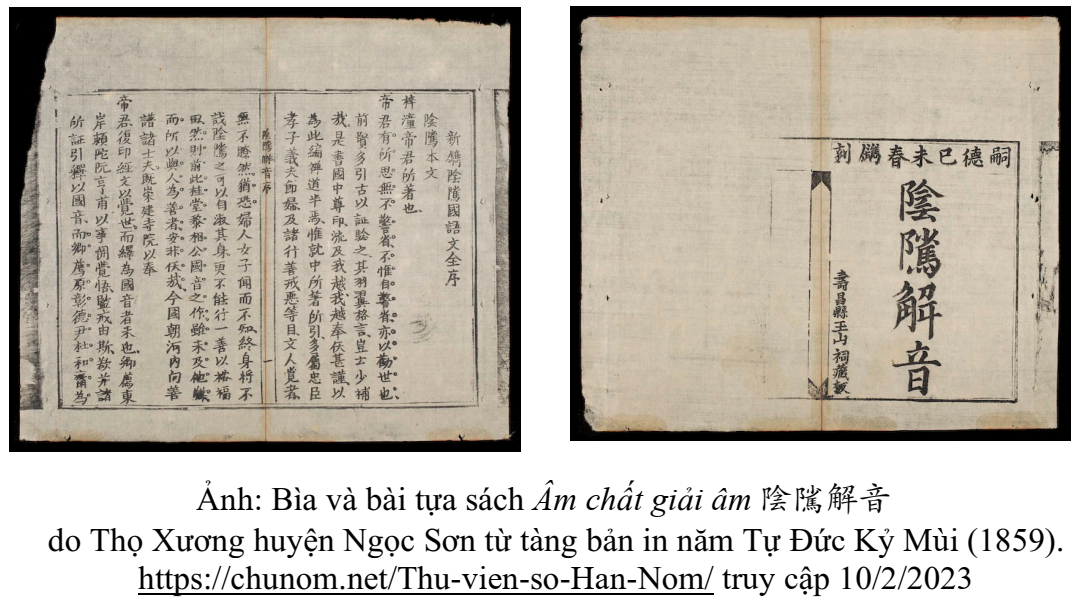 新鐫陰隲國語文全序
陰隲本文
梓潼帝君所著也
帝君有所思無不警省不惟自警省亦以勸世也
前賢多引古以証驗之其羽翼格言豈士少補
我是書國中尊印流及我越我越奉伏甚謹以
為此編禪道半焉惟就中所著所引多屬忠臣
孝子義夫節婦及諸行善戒惡等目文人覽者
陰隲解音序 一
無不瞭然猶恐婦人女子聞而不知終身將不
識陰隲之可以自淑其身更不能行一善以裕福
田然則前此桂堂黎相公國音之作雖未及他
而所以與人為善者安非伏哉今國朝河內向善
譜諸士夫既崇建寺院以奉
帝君復印經文以覺世而繹為國音者未也鄉薦東
岸賴陀阮亨甫以事聞覺悟監戒由斯欵并諸
所証引釋以國音而鄉薦原彰德尹杜和甫為
嗣德己未春鐫刻
陰隲解音
壽昌縣玉山祠藏板
Ảnh: Bìa và bài tựa sách Âm chất giải âm 陰隲解音
do Thọ Xương huyện Ngọc Sơn từ tàng bản in năm Tự Đức Kỷ Mùi (1859).
https://chunom.net/Thu-vien-so-Han-Nom/ truy cập 10/2/2023